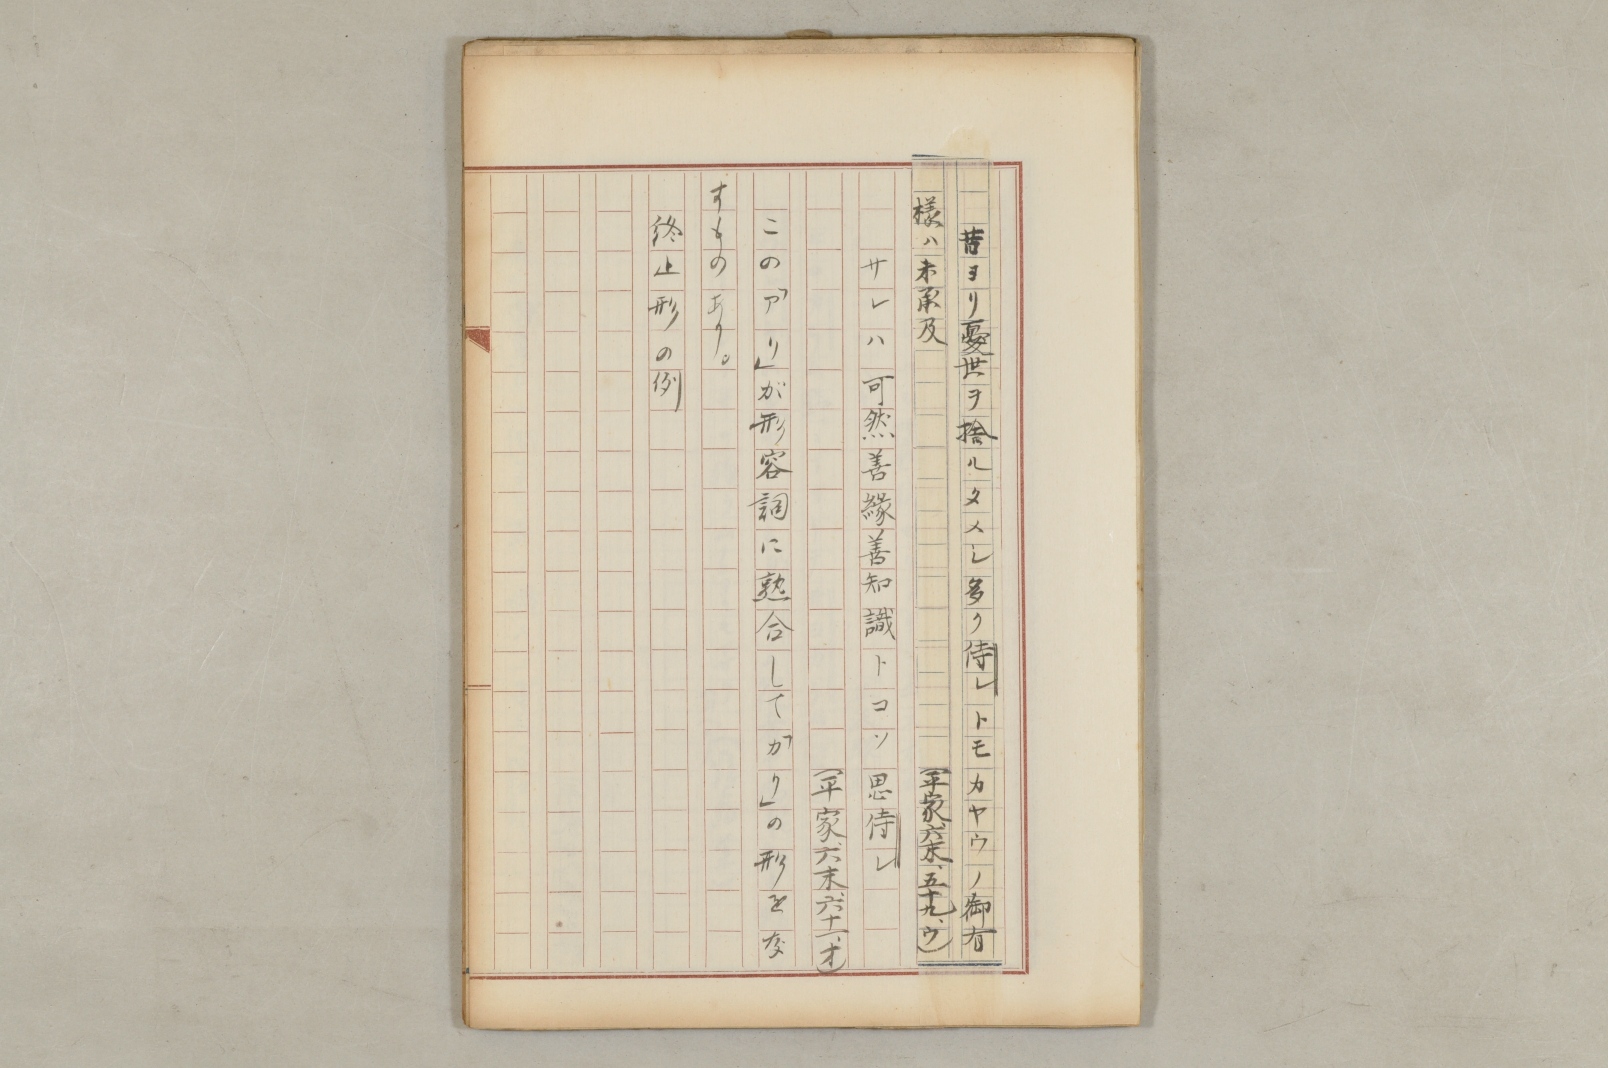 昔ヨリ憂世ヲ捨ルタメシ多ク侍レトモカヤウノ御有
様ハ未承及
(平家、六末、五十九、ウ)
サレハ可然善縁善知識トコソ思侍レ
(平家六末六十一、オ)
この「アリ」が形容詞に熟合して「カリ」の形を なすものあり。
終止形の例